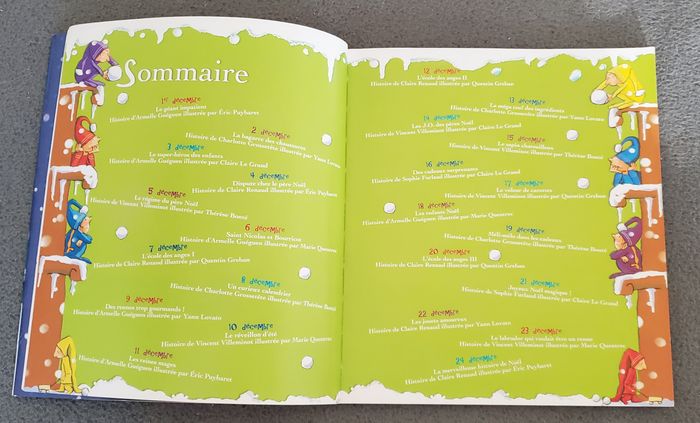 Sommaire
1er décembre
Le géant impatient
Histoire d'Armelle Guégnen illustrée par Éric Puybaret
2 décembre
La bagarre des chaussures
Histoire de Charlotte Grossetête illustrée par Yann Lovato
3 décembre
Le super-héros des enfants
Histoire d'Armelle Guégnen illustrée par Claire Le Grand
4 décembre
Dispute chez le père Noël
Histoire de Claire Renaud illustrée par Éric Puybaret
5 décembre
Le régime du père Noël
Histoire de Vincent Villeminot illustrée par Thérèse Bonté
6 décembre
Saint Nicolas et Bourricot
Histoire d'Armelle Guégnen illustrée par Marie Quentrec
7 décembre
L'école des anges I
Histoire de Claire Renaud illustrée par Quentin Gréban
8 décembre
Un curieux calendrier
Histoire de Charlotte Grossetête illustrée par Thérèse Bonté
9 décembre
Des rennes trop gourmands !
Histoire d'Armelle Guégnen illustrée par Yann Lovato
10 décembre
Le réveillon d'été
Histoire de Vincent Villeminot illustrée par Marie Quentrec
11 décembre
Les reines mages
Histoire d'Armelle Guégnen illustrée par Éric Puybaret
12 décembre
L'école des anges II
Histoire de Claire Renaud illustrée par Quentin Gréban
13 décembre
Le méga tout des ingrédients
Histoire de Charlotte Grossetête illustrée par Yann Lovato
14 décembre
Les J.O. des pères Noël
Histoire de Vincent Villeminot illustrée par Claire Le Grand
15 décembre
Le sapin chatouilleux
Histoire de Vincent Villeminot illustrée par Thérèse Bonté
16 décembre
Des cadeaux surprenants
Histoire de Sophie Furlaud illustrée par Claire Le Grand
17 décembre
Le voleur de carottes
Histoire de Vincent Villeminot illustrée par Quentin Gréban
18 décembre
Les enfants Noël
Histoire d'Armelle Guégnen illustrée par Marie Quentrec
19 décembre
Méli-mélo dans les cadeaux
Histoire de Charlotte Grossetête illustrée par Thérèse Bonté
20 décembre
L'école des anges III
Histoire de Claire Renaud illustrée par Quentin Gréban
21 décembre
Joyeux Noël magique !
Histoire de Sophie Furlaud illustrée par Claire Le Grand
22 décembre
Les jouets amoureux
Histoire de Claire Renaud illustrée par Yann Lovato
23 décembre
Le labrador qui voulait être un renne
Histoire de Vincent Villeminot illustrée par Marie Quentrec
24 décembre
La merveilleuse histoire de Noël
Histoire de Claire Renaud illustrée par Éric Puybaret